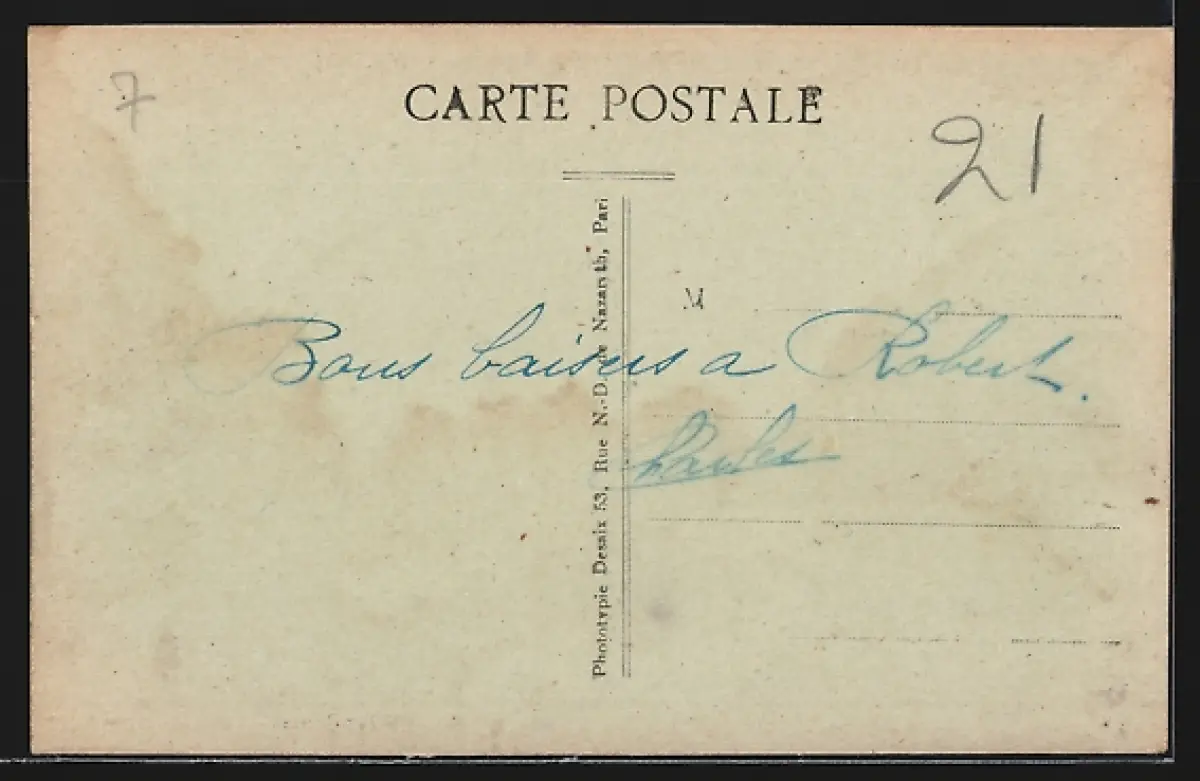 7
CARTE POSTALE
21
Phototypie Desaix 53, Rue N.-D. de Nazareth, Pari
M
Bons baisers a Robert.